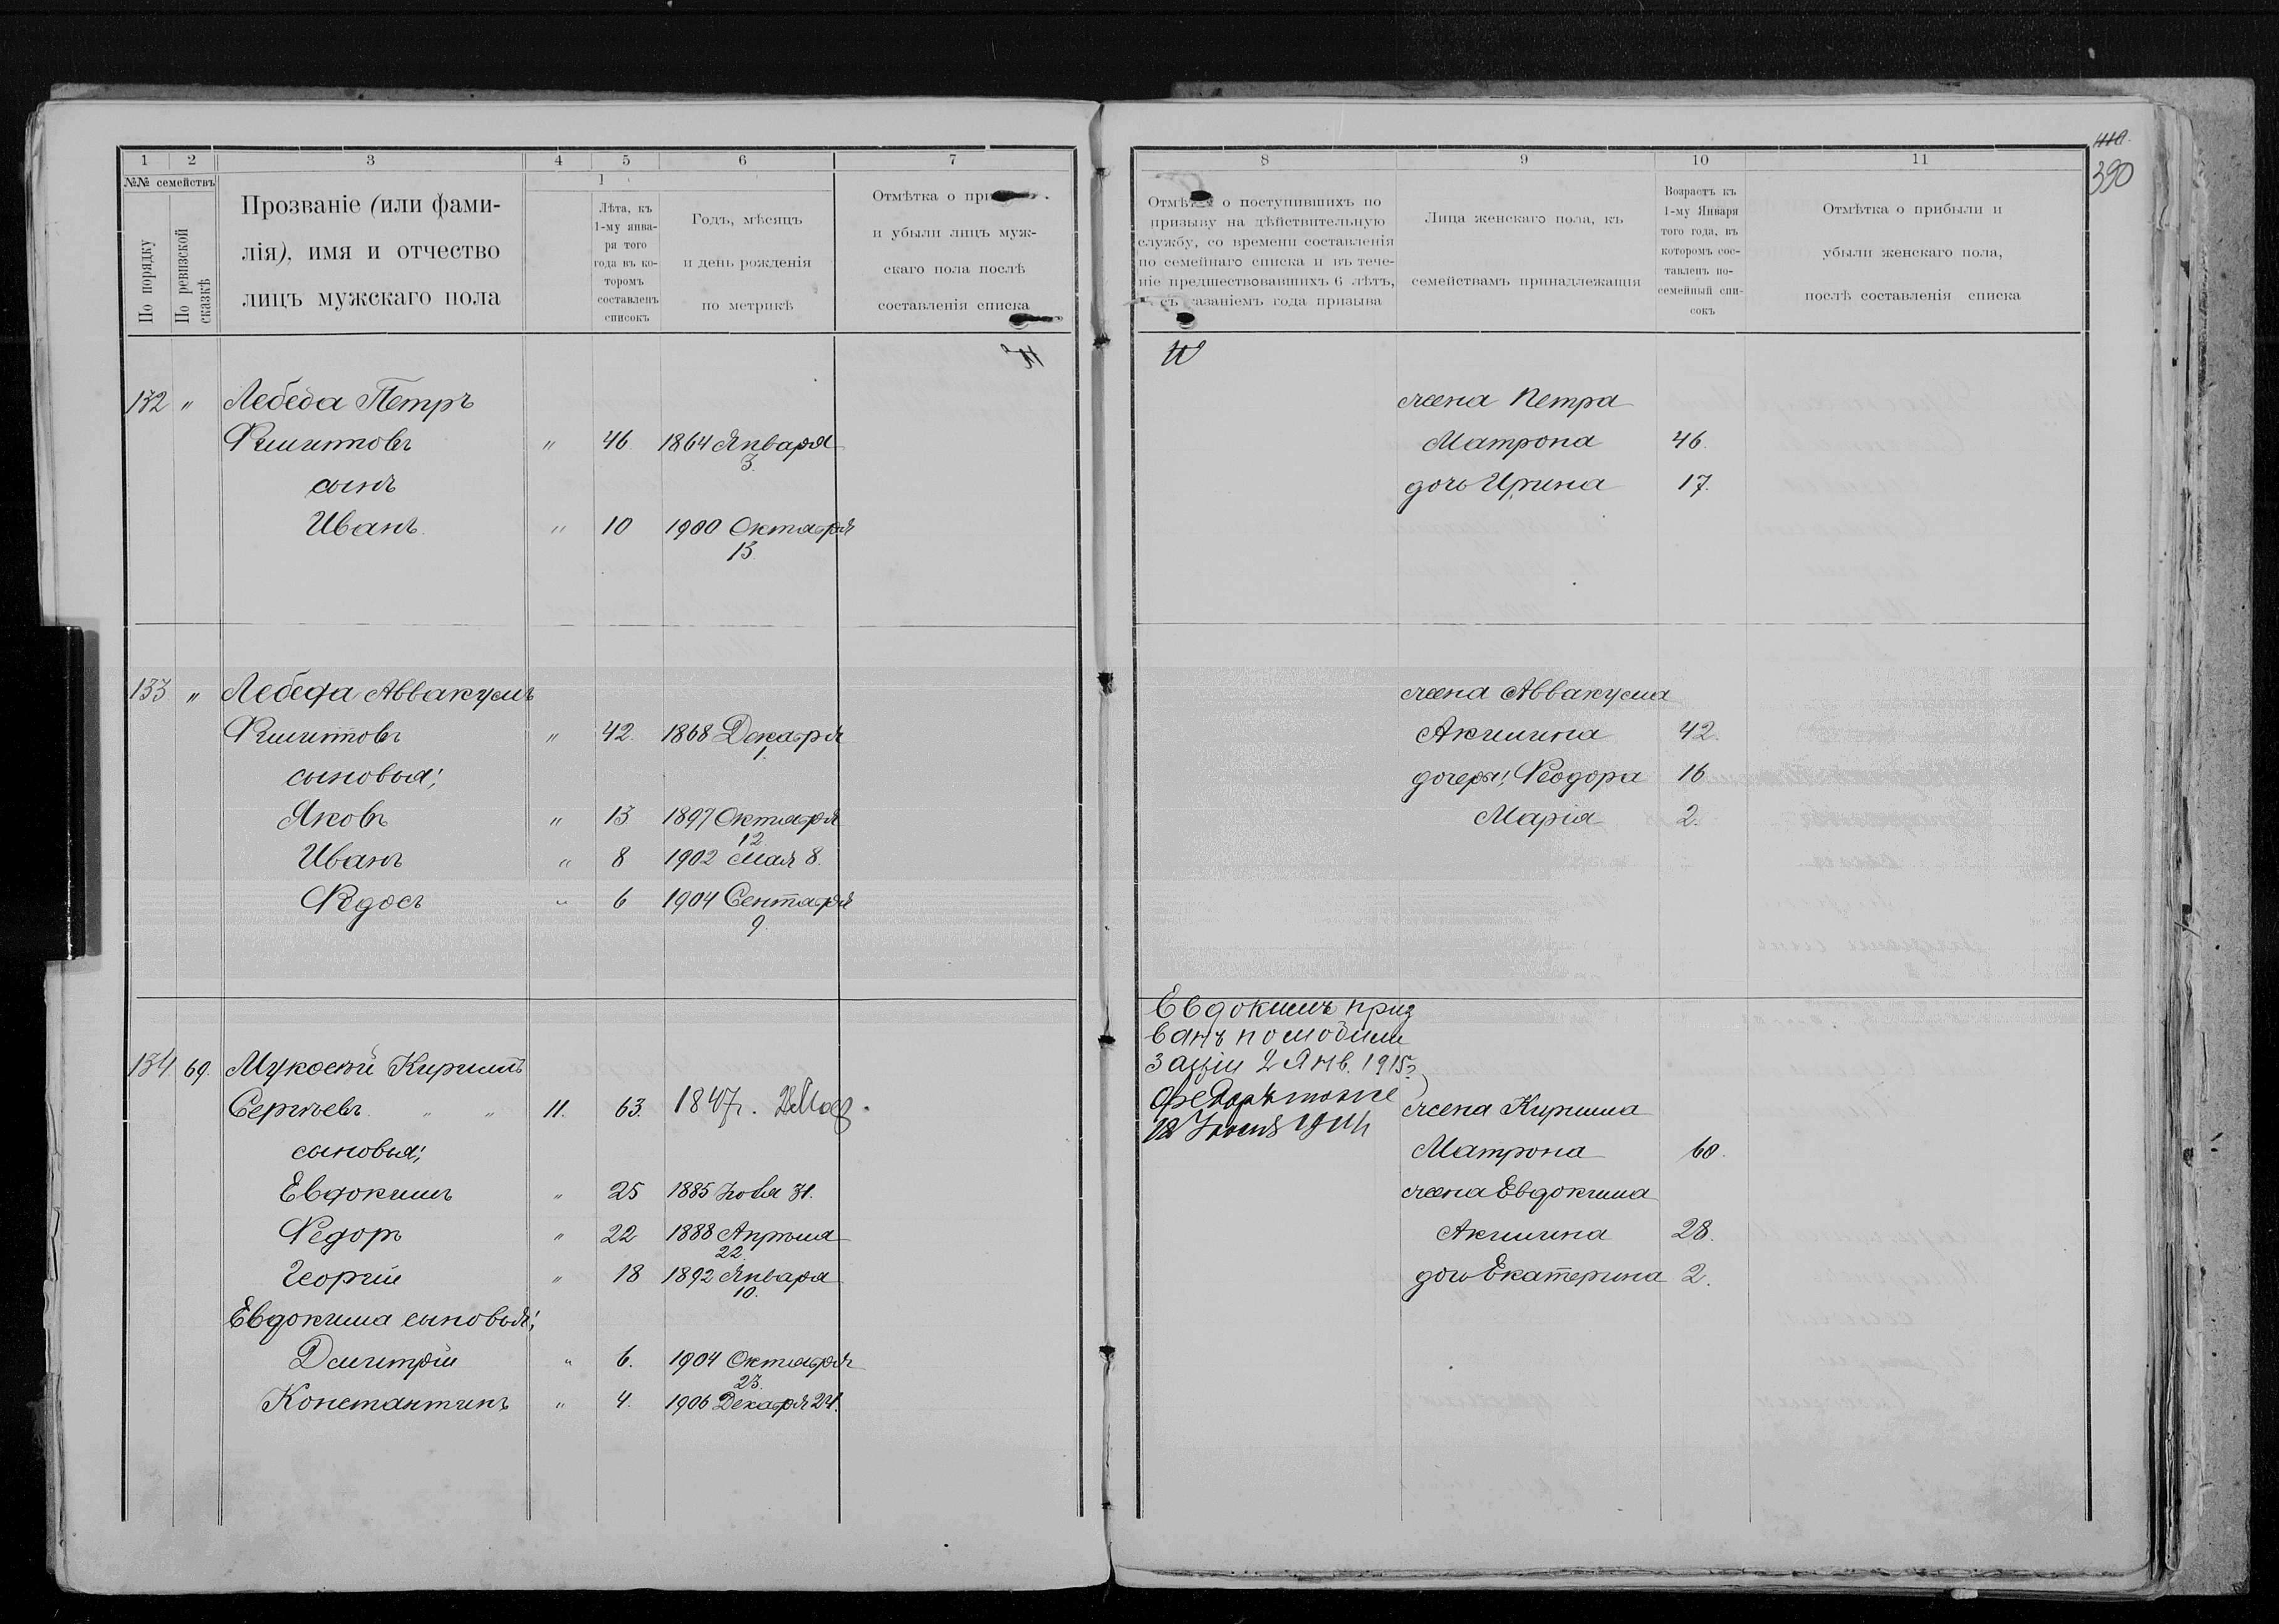 1 2 3 4 5 6 7
№№ семействъ
По порядку
По ревизской сказкѣ
Прозваніе (или фами-
лія), имя и отчество
лицъ мужскаго пола
1
Лѣта, къ
1-му янва-
ря того
года въ ко-
торомъ
составленъ
списокъ
Годъ, мѣсяцъ
и день рожденія
по метрикѣ
Отмѣтка о при
и убыли лицъ муж-
скаго пола послѣ
составленія списка
132 " Лебеда Петръ
" 46. 1864 Января
3.
сынъ
Иванъ " 10 1900 Октября
13.
133 " Лебеда Аввакумъ
" 42. 1868 Декабря
1.
сыновья;
Яковъ " 13 1897 Октября
12.
Иванъ " 8 1902 Мая 8.
" 6 1904 Сентября
9.
134. 69. Кириллъ
Сергѣевъ " " 11. 63. 1847г.
сыновья;
Евдокимъ " 25 1885 31.
Федоръ " 22 1888 Апрѣля
22.
Георгій " 18 1892 Января
10.
Евдокима сыновья;
Дмитрій " 6. 1904 Октября
23.
Константинъ " 4. 1906 Декабря 24.
8 9 10 11
390
о поступившихъ по
призыву на дѣйствительную
службу, со времени составленія
по семейнаго списка и въ тече-
ніе предшествовавшихъ 6 лѣтъ,
съ указаніемъ года призыва
Лица женскаго пола, къ
семействамъ принадлежащія
Возрастъ къ
1-му Января
того года, въ
которомъ сос-
тавленъ по-
семейный спи-
сокъ
Отмѣтка о прибыли и
убыли женскаго пола,
послѣ составленія списка
жена Петра
Матрона 46.
дочь Ирина 17.
жена Аввакума
Акилина 42.
дочери; Феодора 16
Марія 2.
Евдокимъ приз
ванъ по мобили
заціи 2 Янв. 1915г
Федоръ тоже
18 1914
жена Кирилла
Матрона 60.
жена Евдокима
Акилина 28.
дочь Екатерина 2.